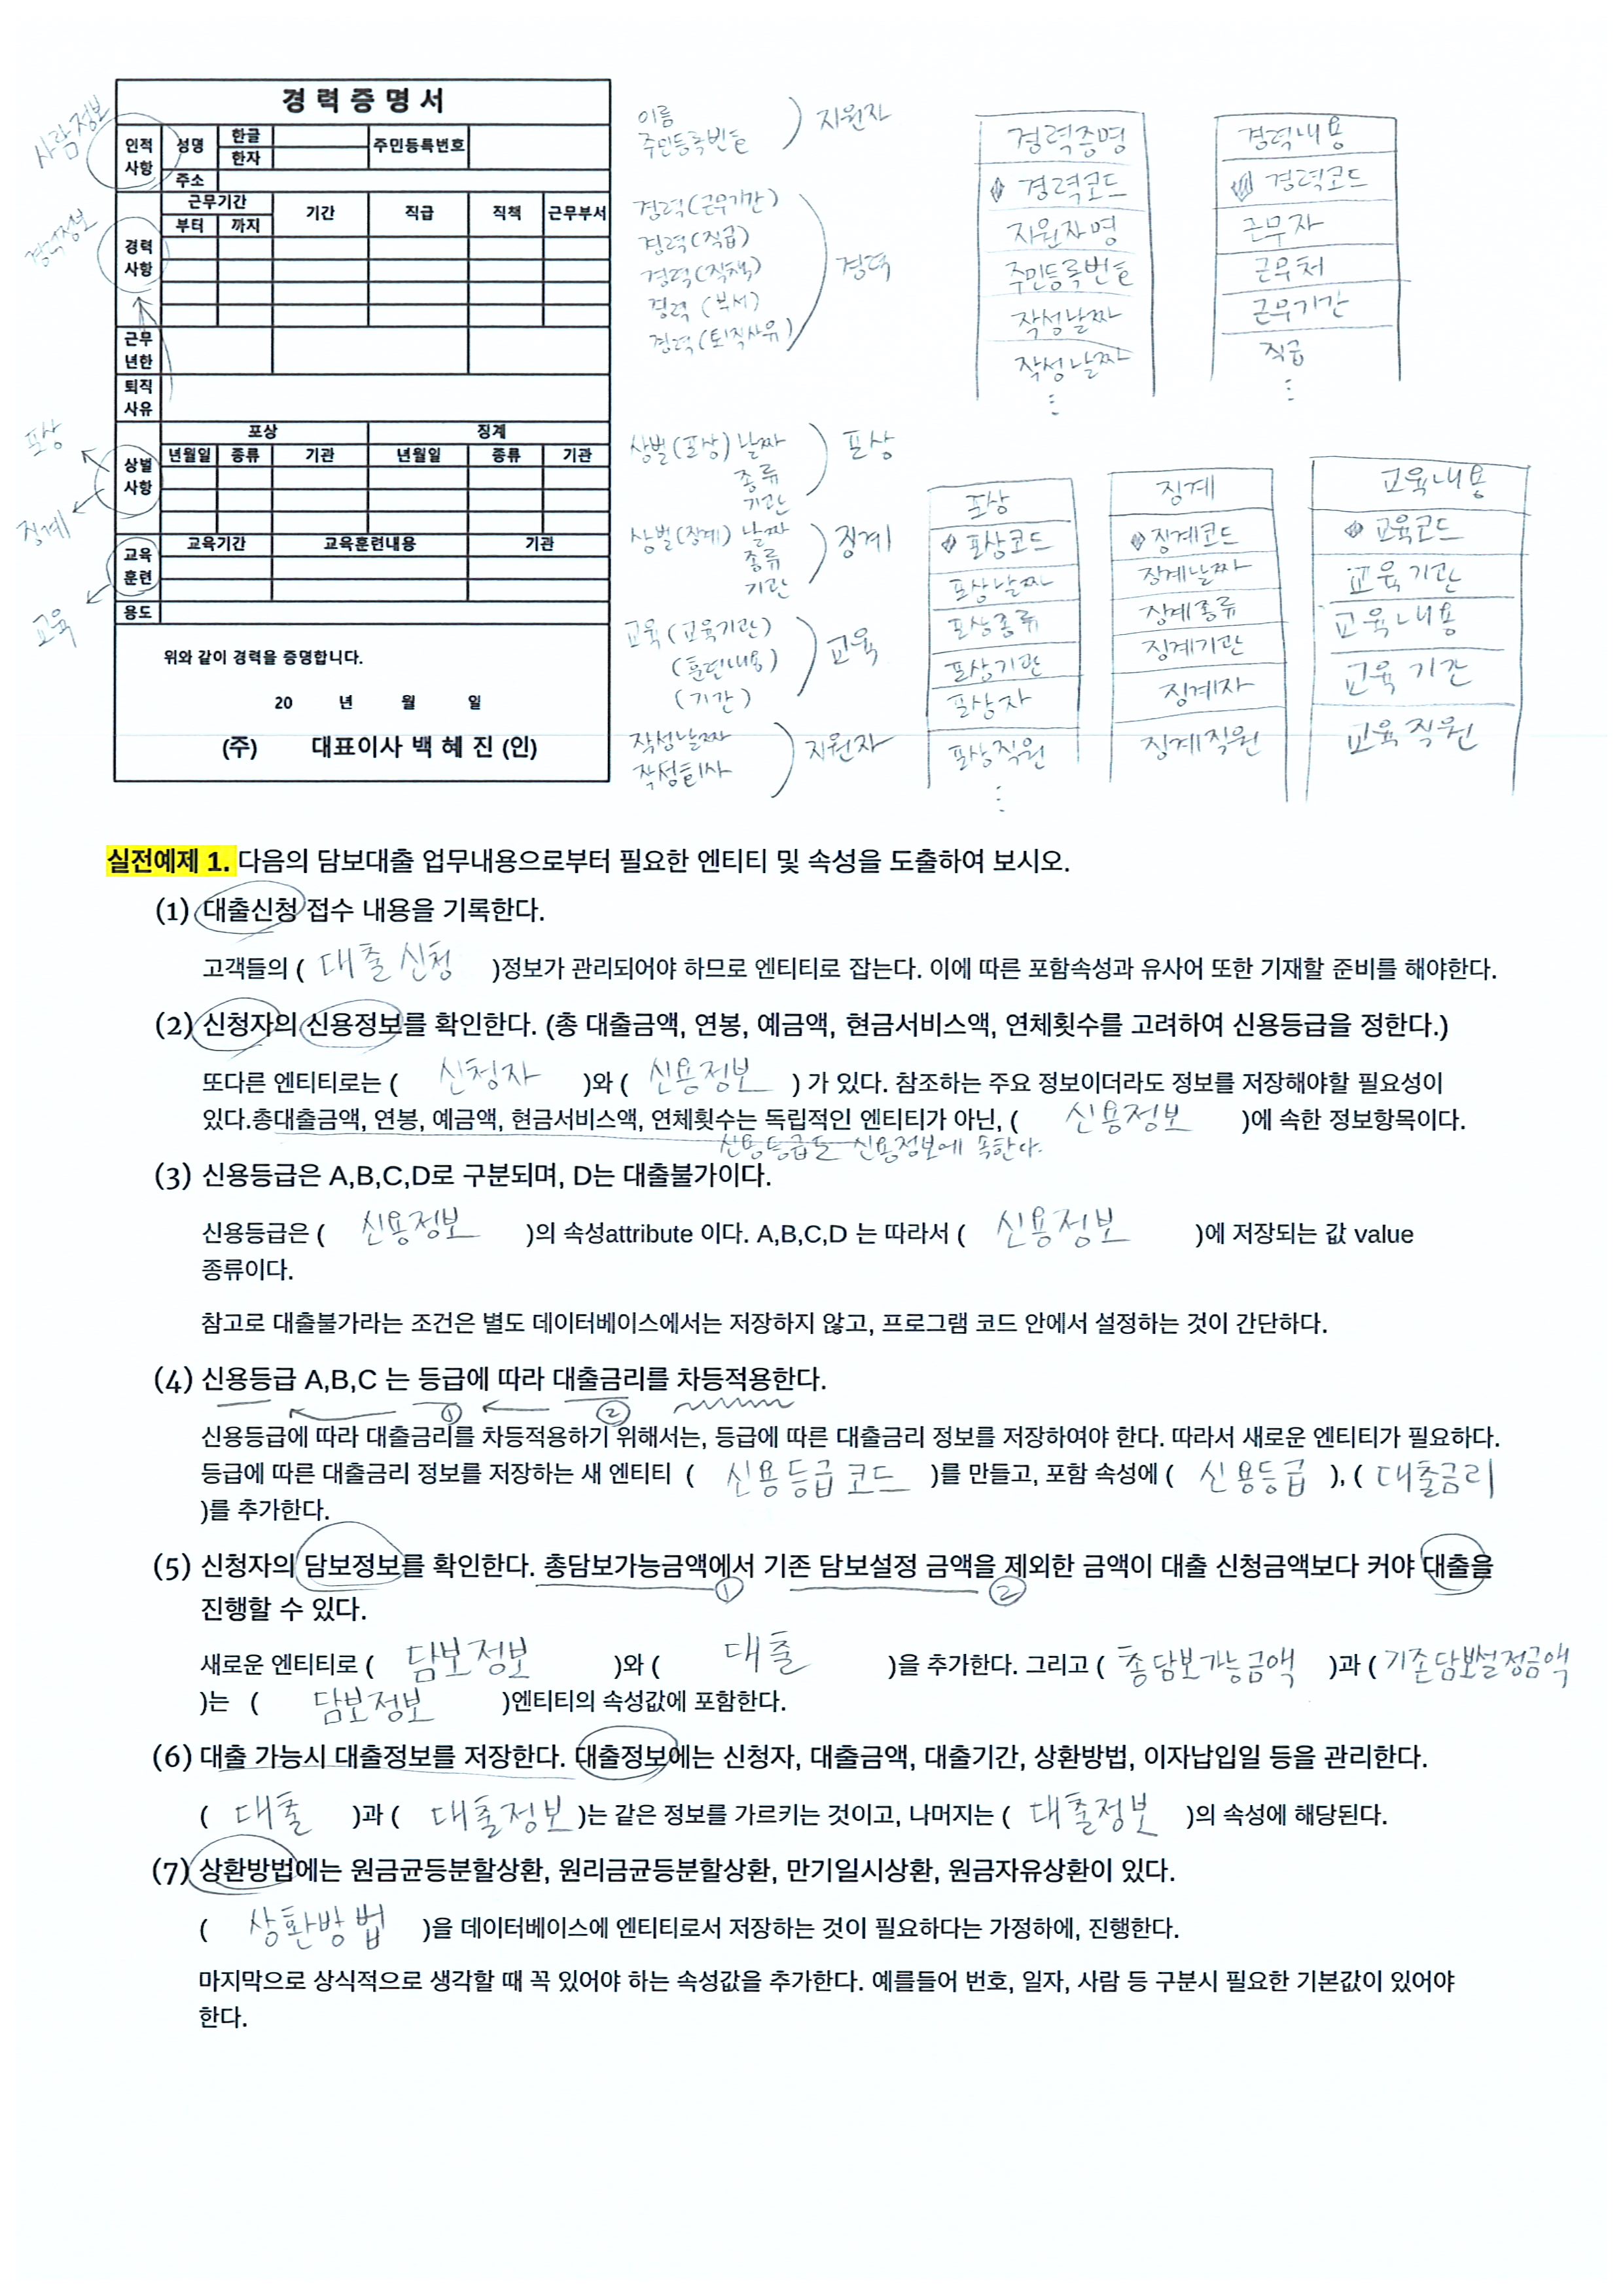 경력증명서
사람정보
인적
사항
성명
한글
한자
주민등록번호
주소
경력정보
경력
사항
근무기간
부터 까지
기간
직급
직책
근무부서
근무
년한
퇴직
사유
포상
징계
상벌
사항
포상 징계
년월일 종류 기관 년월일 종류 기관
교육
교육
훈련
교육기간 교육훈련내용 기관
용도
위와 같이 경력을 증명합니다.
20 년 월 일
(주) 대표이사 백 혜 진 (인)
이름
주민등록번호
지원자
경력(근무기간)
경력(직급)
경력(직책)
경력 (부서)
경력(퇴직사유)
경력
상벌(포상) 날짜
종류
기관
포상
상벌(징계) 날짜
종류
기관
징계
교육(교육기관)
(훈련내용)
(기간)
교육
작성날짜
작성회사
지원자
경력증명
경력코드
지원자명
주민등록번호
작성날짜
작성날짜
⋮
경력내용
경력코드
근무자
근무처
근무기간
직급
⋮
포상
포상코드
포상날짜
포상종류
포상기관
포상자
포상직원
⋮
징계
징계코드
징계날짜
징계종류
징계기관
징계자
징계직원
교육내용
교육코드
교육기관
교육내용
교육 기간
교육 직원
실전예제 1. 다음의 담보대출 업무내용으로부터 필요한 엔티티 및 속성을 도출하여 보시오.
(1) 대출신청 접수 내용을 기록한다.
고객들의 ( 대출신청 )정보가 관리되어야 하므로 엔티티로 잡는다. 이에 따른 포함속성과 유사어 또한 기재할 준비를 해야한다.
(2) 신청자의 신용정보를 확인한다. (총 대출금액, 연봉, 예금액, 현금서비스액, 연체횟수를 고려하여 신용등급을 정한다.)
또다른 엔티티로는 ( 신청자 )와 ( 신용정보 ) 가 있다. 참조하는 주요 정보이더라도 정보를 저장해야할 필요성이
있다.총대출금액, 연봉, 예금액, 현금서비스액, 연체횟수는 독립적인 엔티티가 아닌, ( 신용정보 )에 속한 정보항목이다.
신용등급도 신용정보에 속한다.
(3) 신용등급은 A,B,C,D로 구분되며, D는 대출불가이다.
신용등급은 ( 신용정보 )의 속성attribute 이다. A,B,C,D 는 따라서 ( 신용정보 )에 저장되는 값 value
종류이다.
참고로 대출불가라는 조건은 별도 데이터베이스에서는 저장하지 않고, 프로그램 코드 안에서 설정하는 것이 간단하다.
(4) 신용등급 A,B,C 는 등급에 따라 대출금리를 차등적용한다.
① ②
신용등급에 따라 대출금리를 차등적용하기 위해서는, 등급에 따른 대출금리 정보를 저장하여야 한다. 따라서 새로운 엔티티가 필요하다.
등급에 따른 대출금리 정보를 저장하는 새 엔티티 ( 신용등급코드 )를 만들고, 포함 속성에 ( 신용등급 ), ( 대출금리
)를 추가한다.
(5) 신청자의 담보정보를 확인한다. 총담보가능금액에서 기존 담보설정 금액을 제외한 금액이 대출 신청금액보다 커야 대출을
① ②
진행할 수 있다.
새로운 엔티티로 ( 담보정보 )와 ( 대출 )을 추가한다. 그리고 ( 총담보가능금액 )과 ( 기존담보설정금액
)는 ( 담보정보 )엔티티의 속성값에 포함한다.
(6) 대출 가능시 대출정보를 저장한다. 대출정보에는 신청자, 대출금액, 대출기간, 상환방법, 이자납입일 등을 관리한다.
( 대출 )과 ( 대출정보 )는 같은 정보를 가르키는 것이고, 나머지는 ( 대출정보 )의 속성에 해당된다.
(7) 상환방법에는 원금균등분할상환, 원리금균등분할상환, 만기일시상환, 원금자유상환이 있다.
( 상환방법 )을 데이터베이스에 엔티티로서 저장하는 것이 필요하다는 가정하에, 진행한다.
마지막으로 상식적으로 생각할 때 꼭 있어야 하는 속성값을 추가한다. 예를들어 번호, 일자, 사람 등 구분시 필요한 기본값이 있어야
한다.